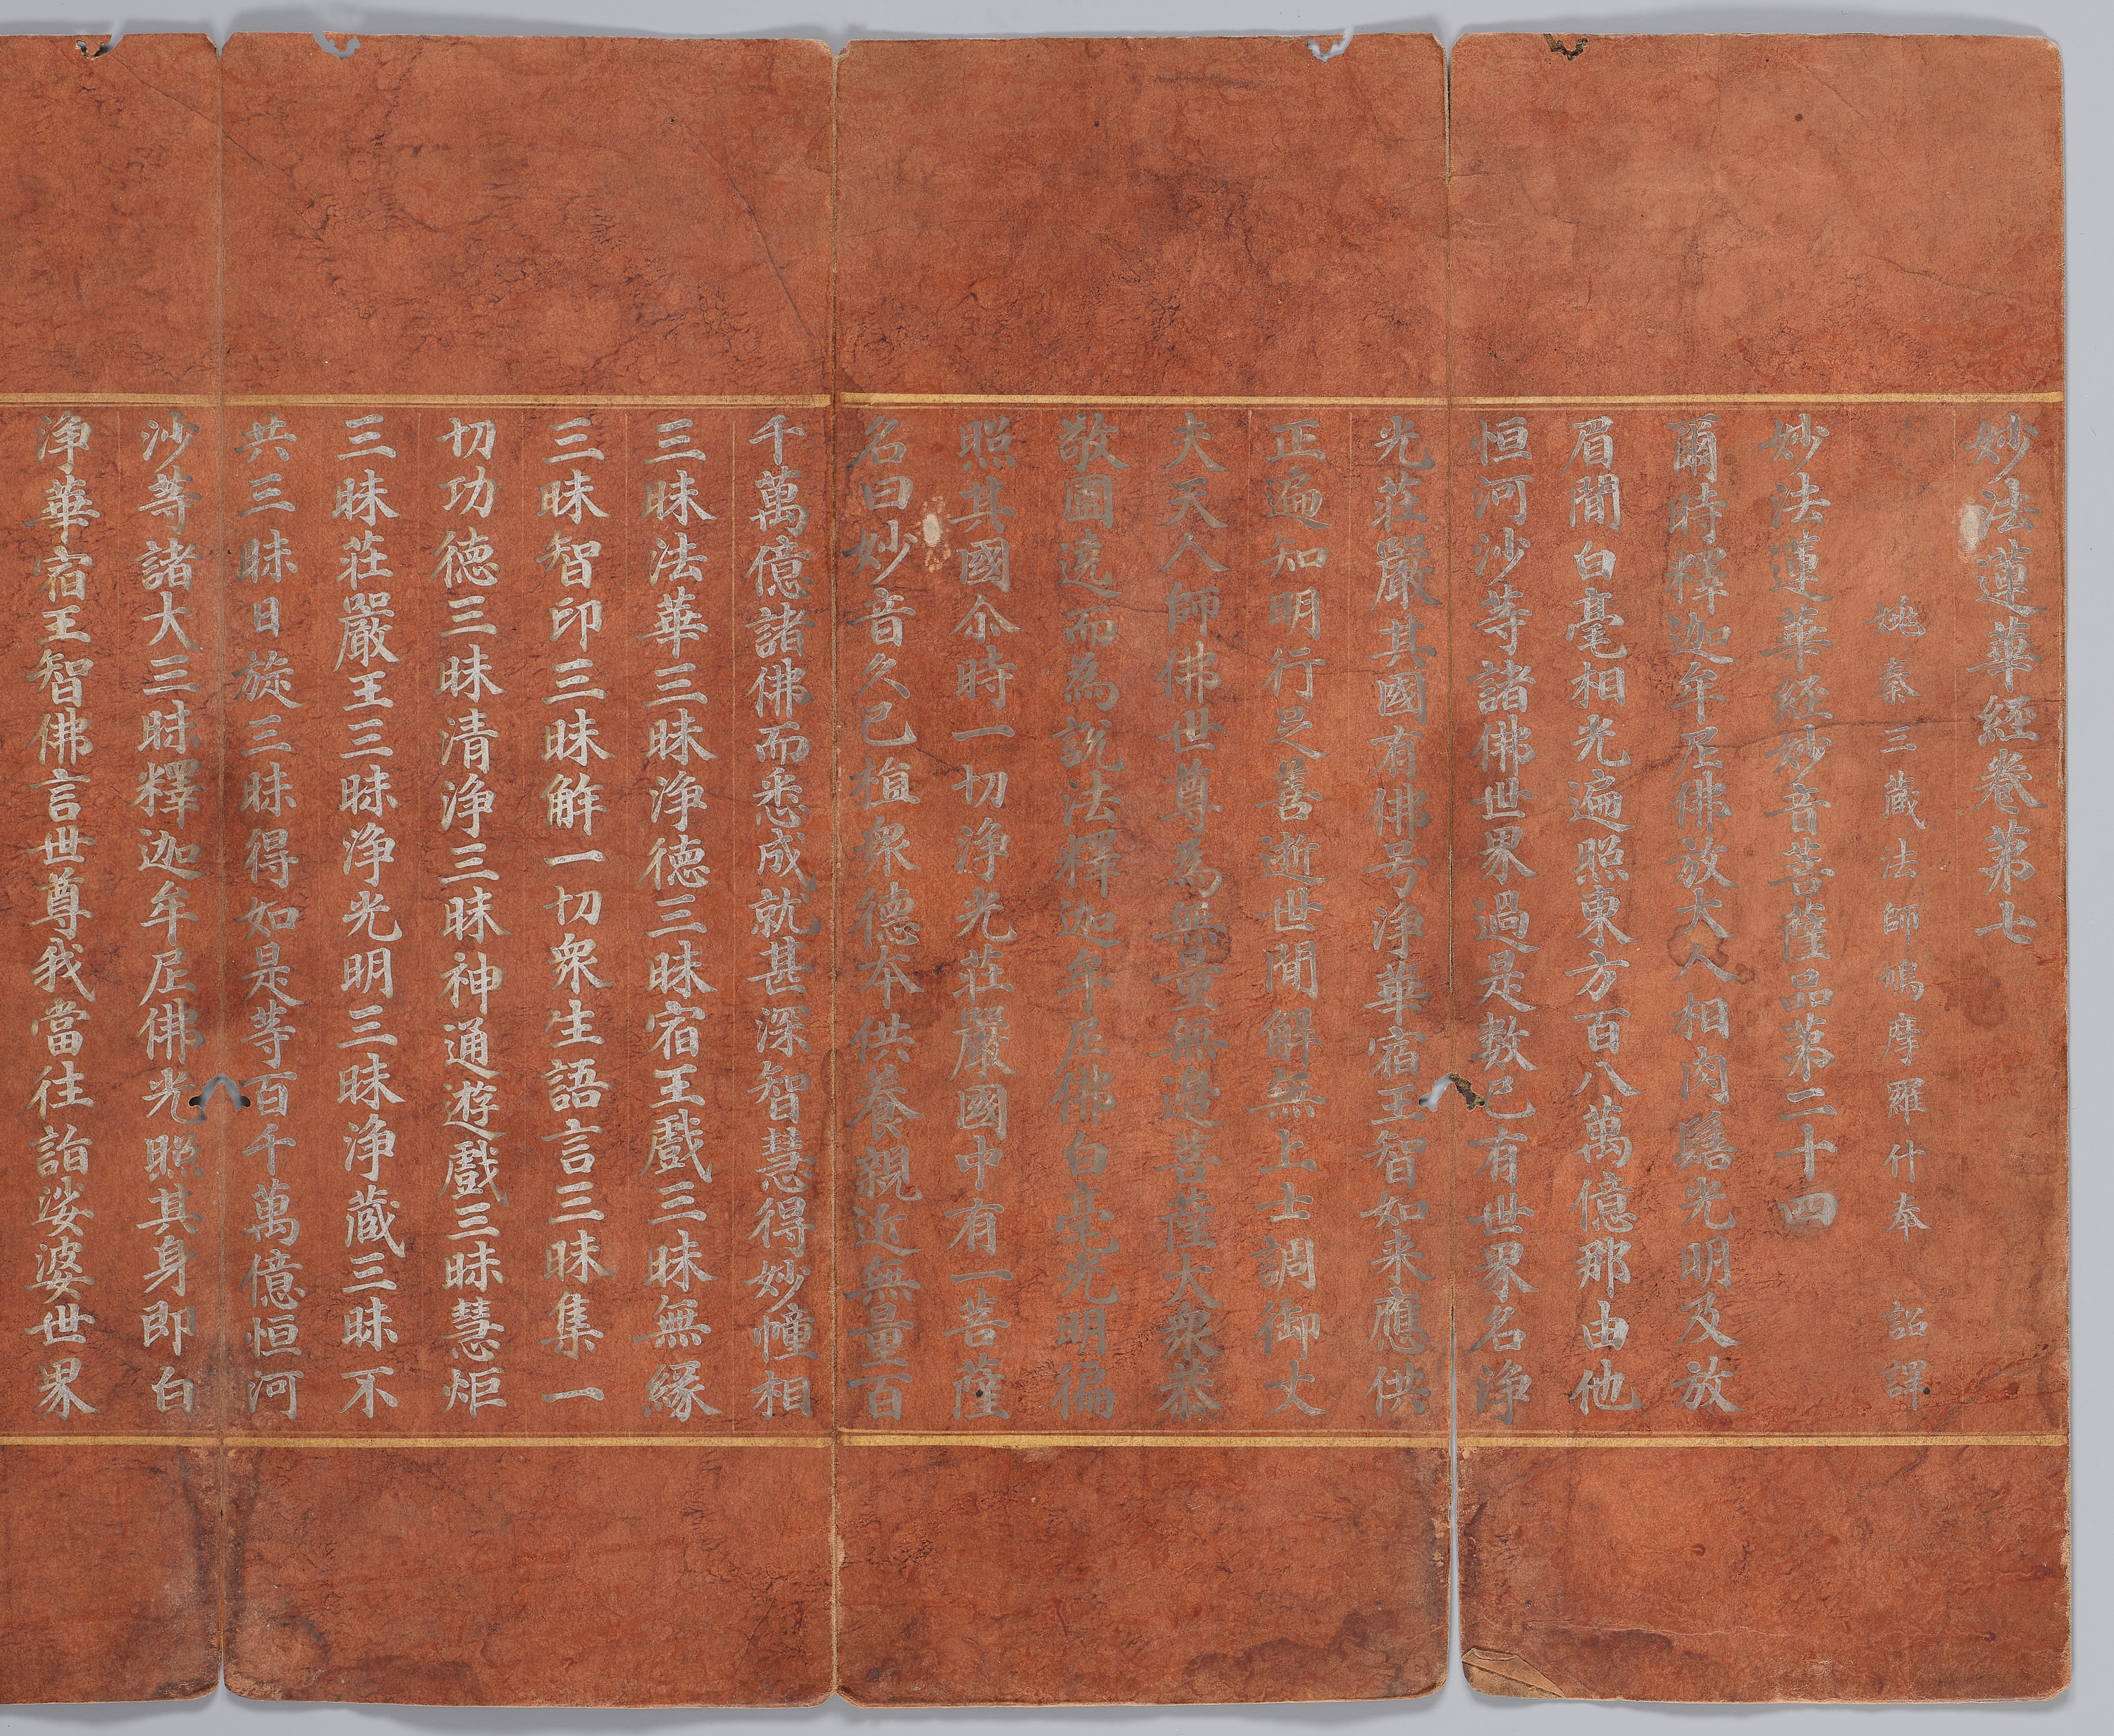 妙法蓮華経卷第七
姚秦三蔵法師鳩摩羅什奉 詔譯
妙法蓮華経妙音菩薩品第二十四
爾時釋迦牟尼佛放大人相肉髻光明及放
眉間白毫相光遍照東方百八萬億那由他
恒河沙等諸佛世界過是數已有世界名淨
光莊嚴其國有佛号淨華宿王智如來應供
正遍知明行足善逝世間解無上士調御丈
夫天人師佛世尊為無量無邊菩薩大衆恭
敬圍遶而為說法釋迦牟尼佛白毫光明徧
照其國尒時一切淨光莊嚴國中有一菩薩
名曰妙音久已植衆德本供養親近無量百
千萬億諸佛而悉成就甚深智慧得妙幢相
三昧法華三昧淨德三昧宿王戲三昧無緣
三昧智印三昧解一切衆生語言三昧集一
切功德三昧清淨三昧神通遊戲三昧慧炬
三昧莊嚴王三昧淨光明三昧淨蔵三昧不
共三昧日旋三昧得如是等百千萬億恒河
沙等諸大三昧釋迦牟尼佛光照其身即白
淨華宿王智佛言世尊我當往詣娑婆世界